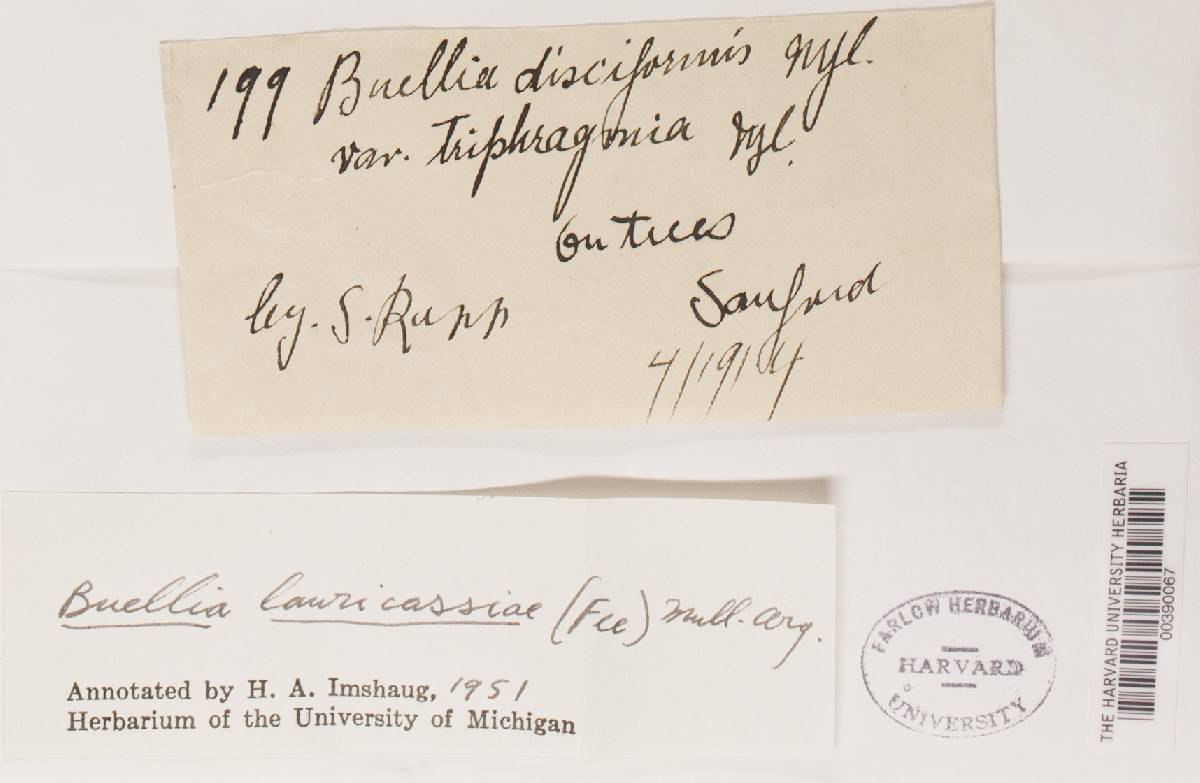 199 Buellia disciformis Nyl.
var. triphragmia Nyl.
On trees
leg. S. Rapp Sanford
4/19/14
Buellia lauricassiae (Fee) Mull. Arg.
Annotated by H. A. Imshaug, 1951
Herbarium of the University of Michigan
FARLOW HERBARIUM
HARVARD
UNIVERSITY
THE HARVARD UNIVERSITY HERBARIA
00390067